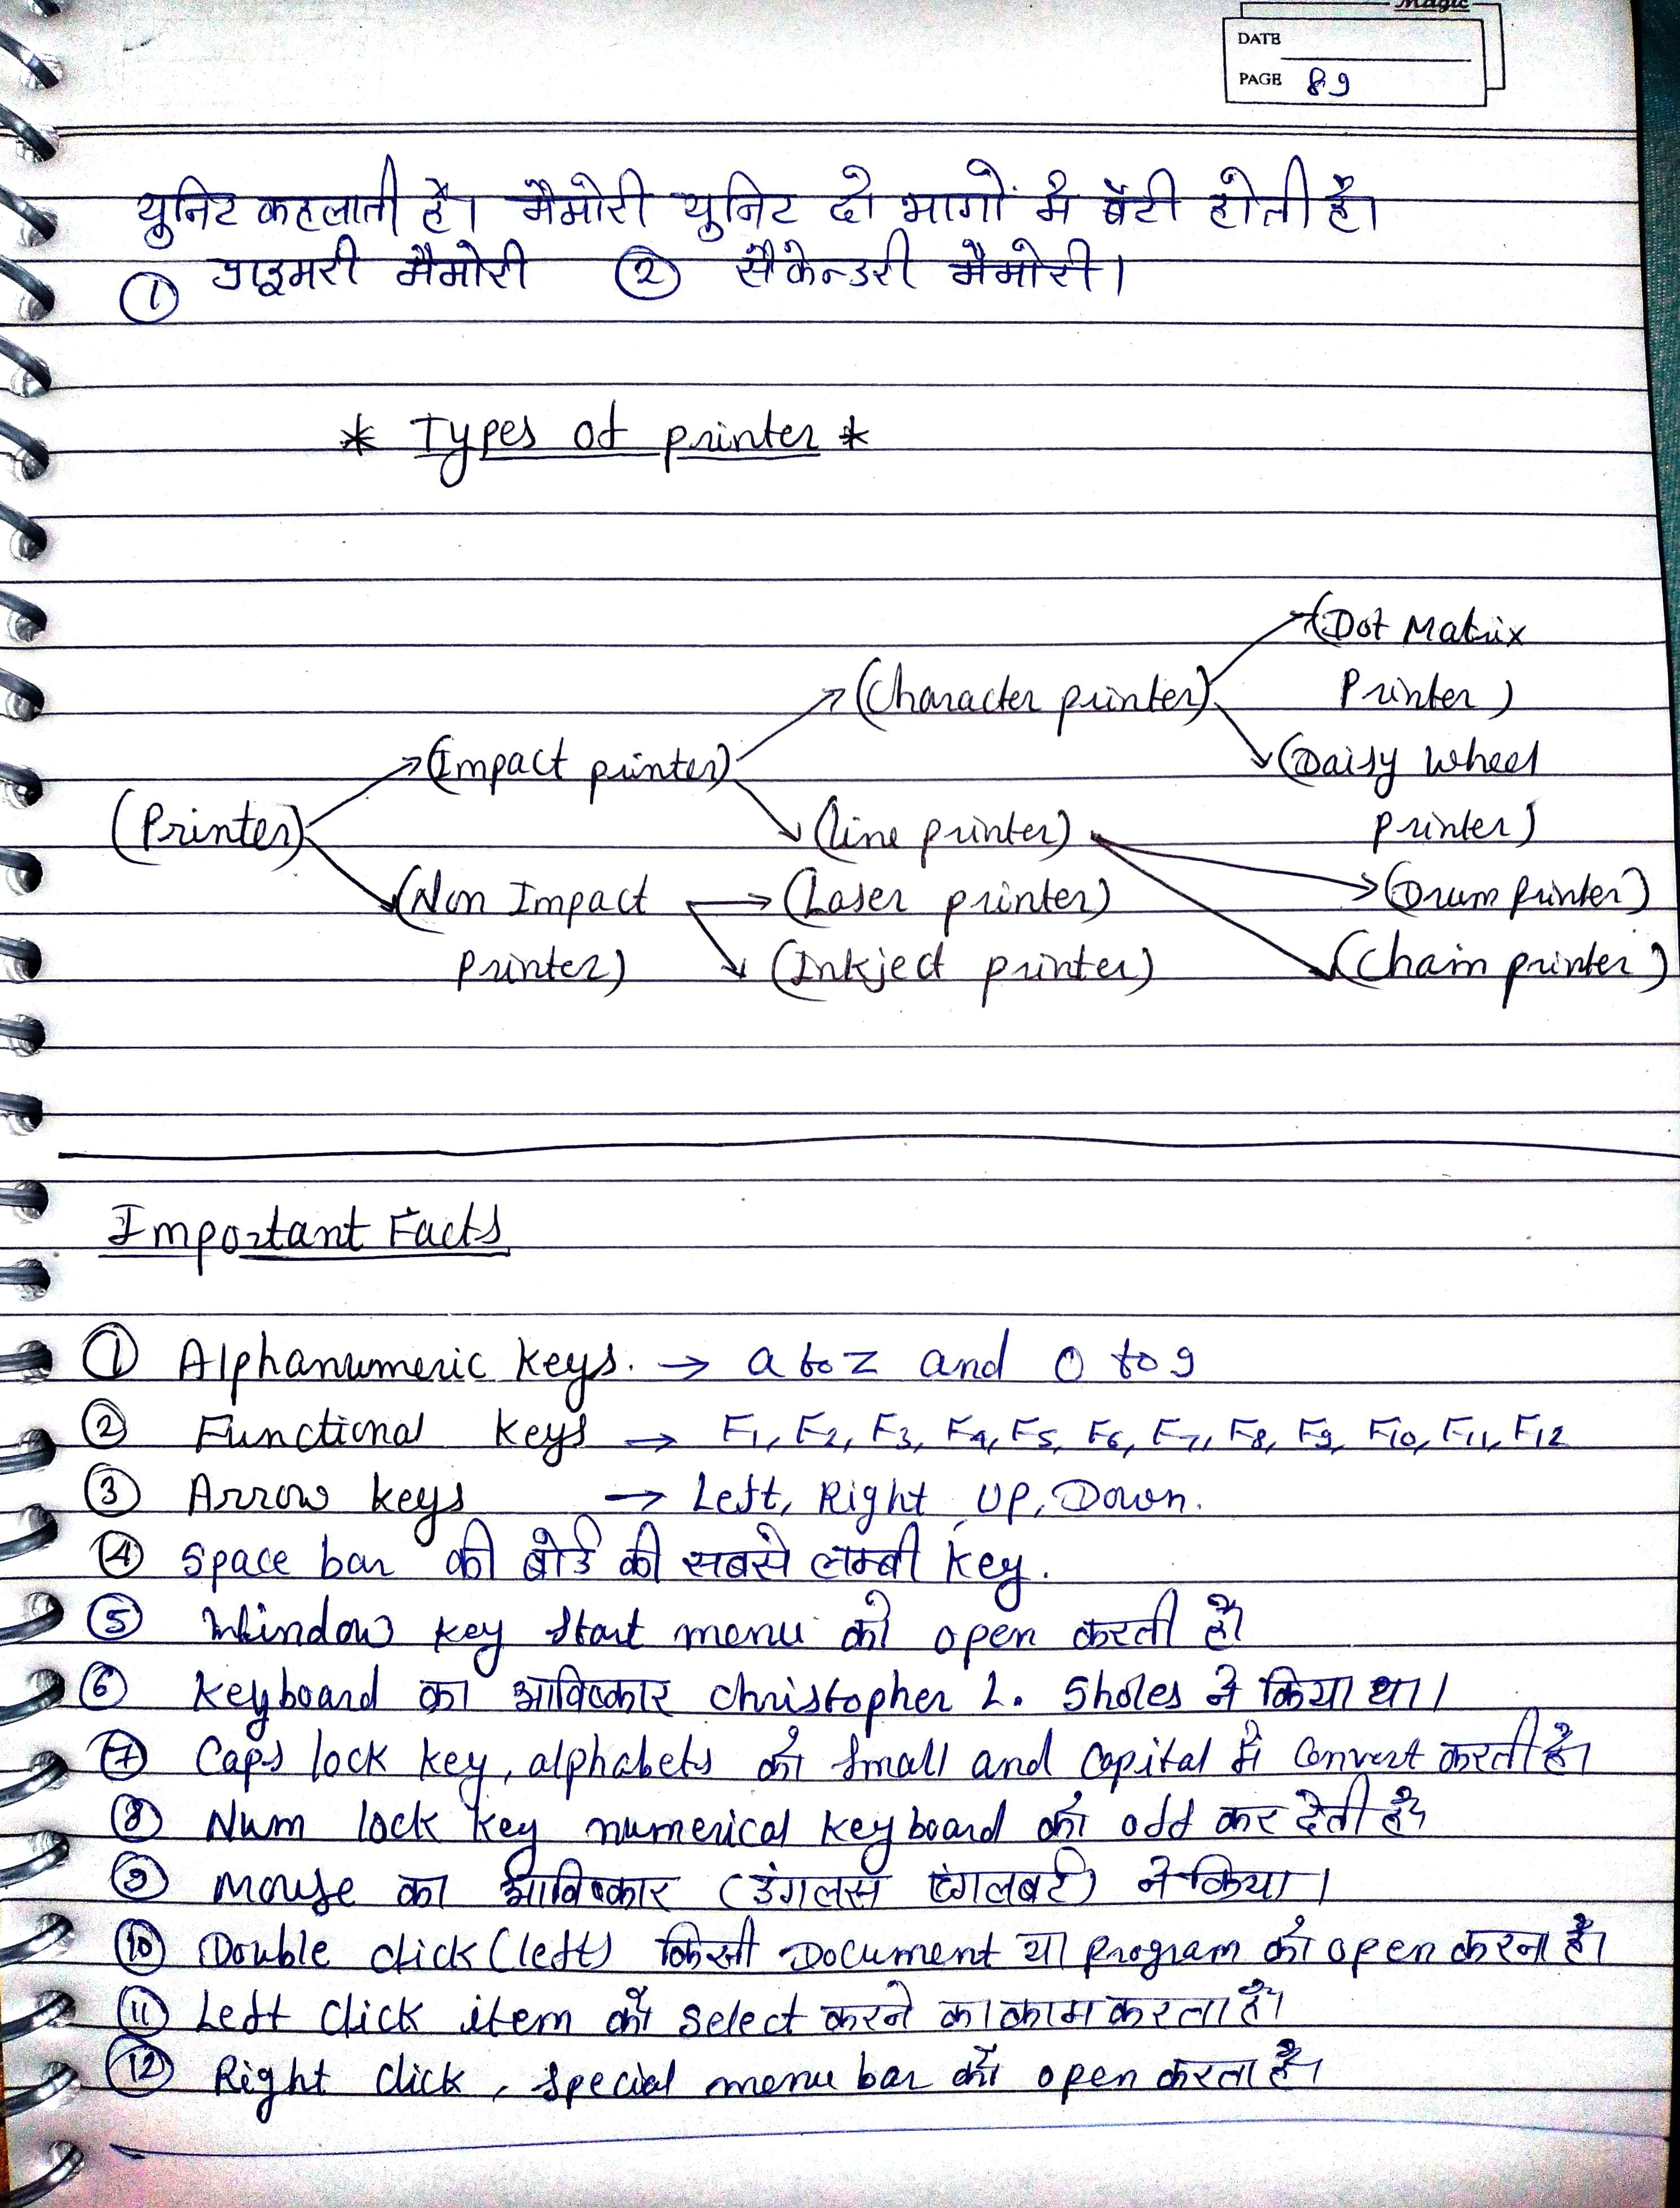 Magic
DATE
PAGE 89
युनिट कहलाती हैं। मैमोरी युनिट दो भागों में बँटी होती हैं।
① प्राइमरी मैमोरी ② सैकेन्डरी मैमोरी।
* Types of printer *
(Dot Matrix
(Character printer) Printer)
(Impact printer) (Daisy Wheel
(Printer) (Line printer) printer)
(Non Impact (Laser printer) (Drum printer)
printer) (Inkject printer) (Chain printer)
Important Facts
① Alphanumeric keys. → a to z and 0 to 9
② Functional keys → F1, F2, F3, F4, F5, F6, F7, F8, F9, F10, F11, F12
③ Arrow keys → Left, Right, Up, Down.
④ Space bar की बोर्ड की सबसे लम्बी key.
⑤ Window key start menu को open करती है।
⑥ Keyboard का आविष्कार Christopher L. Sholes ने किया था।
⑦ Caps lock key, alphabets को small and capital में convert करती है।
⑧ Num lock key numerical keyboard को off कर देती है।
⑨ Mouse का आविष्कार (डंगलस एंगलबर्ट) ने किया।
⑩ Double click (left) किसी Document या program को open करना है।
⑪ Left click item को select करने का काम करता है।
⑫ Right click, special menu bar को open करता है।